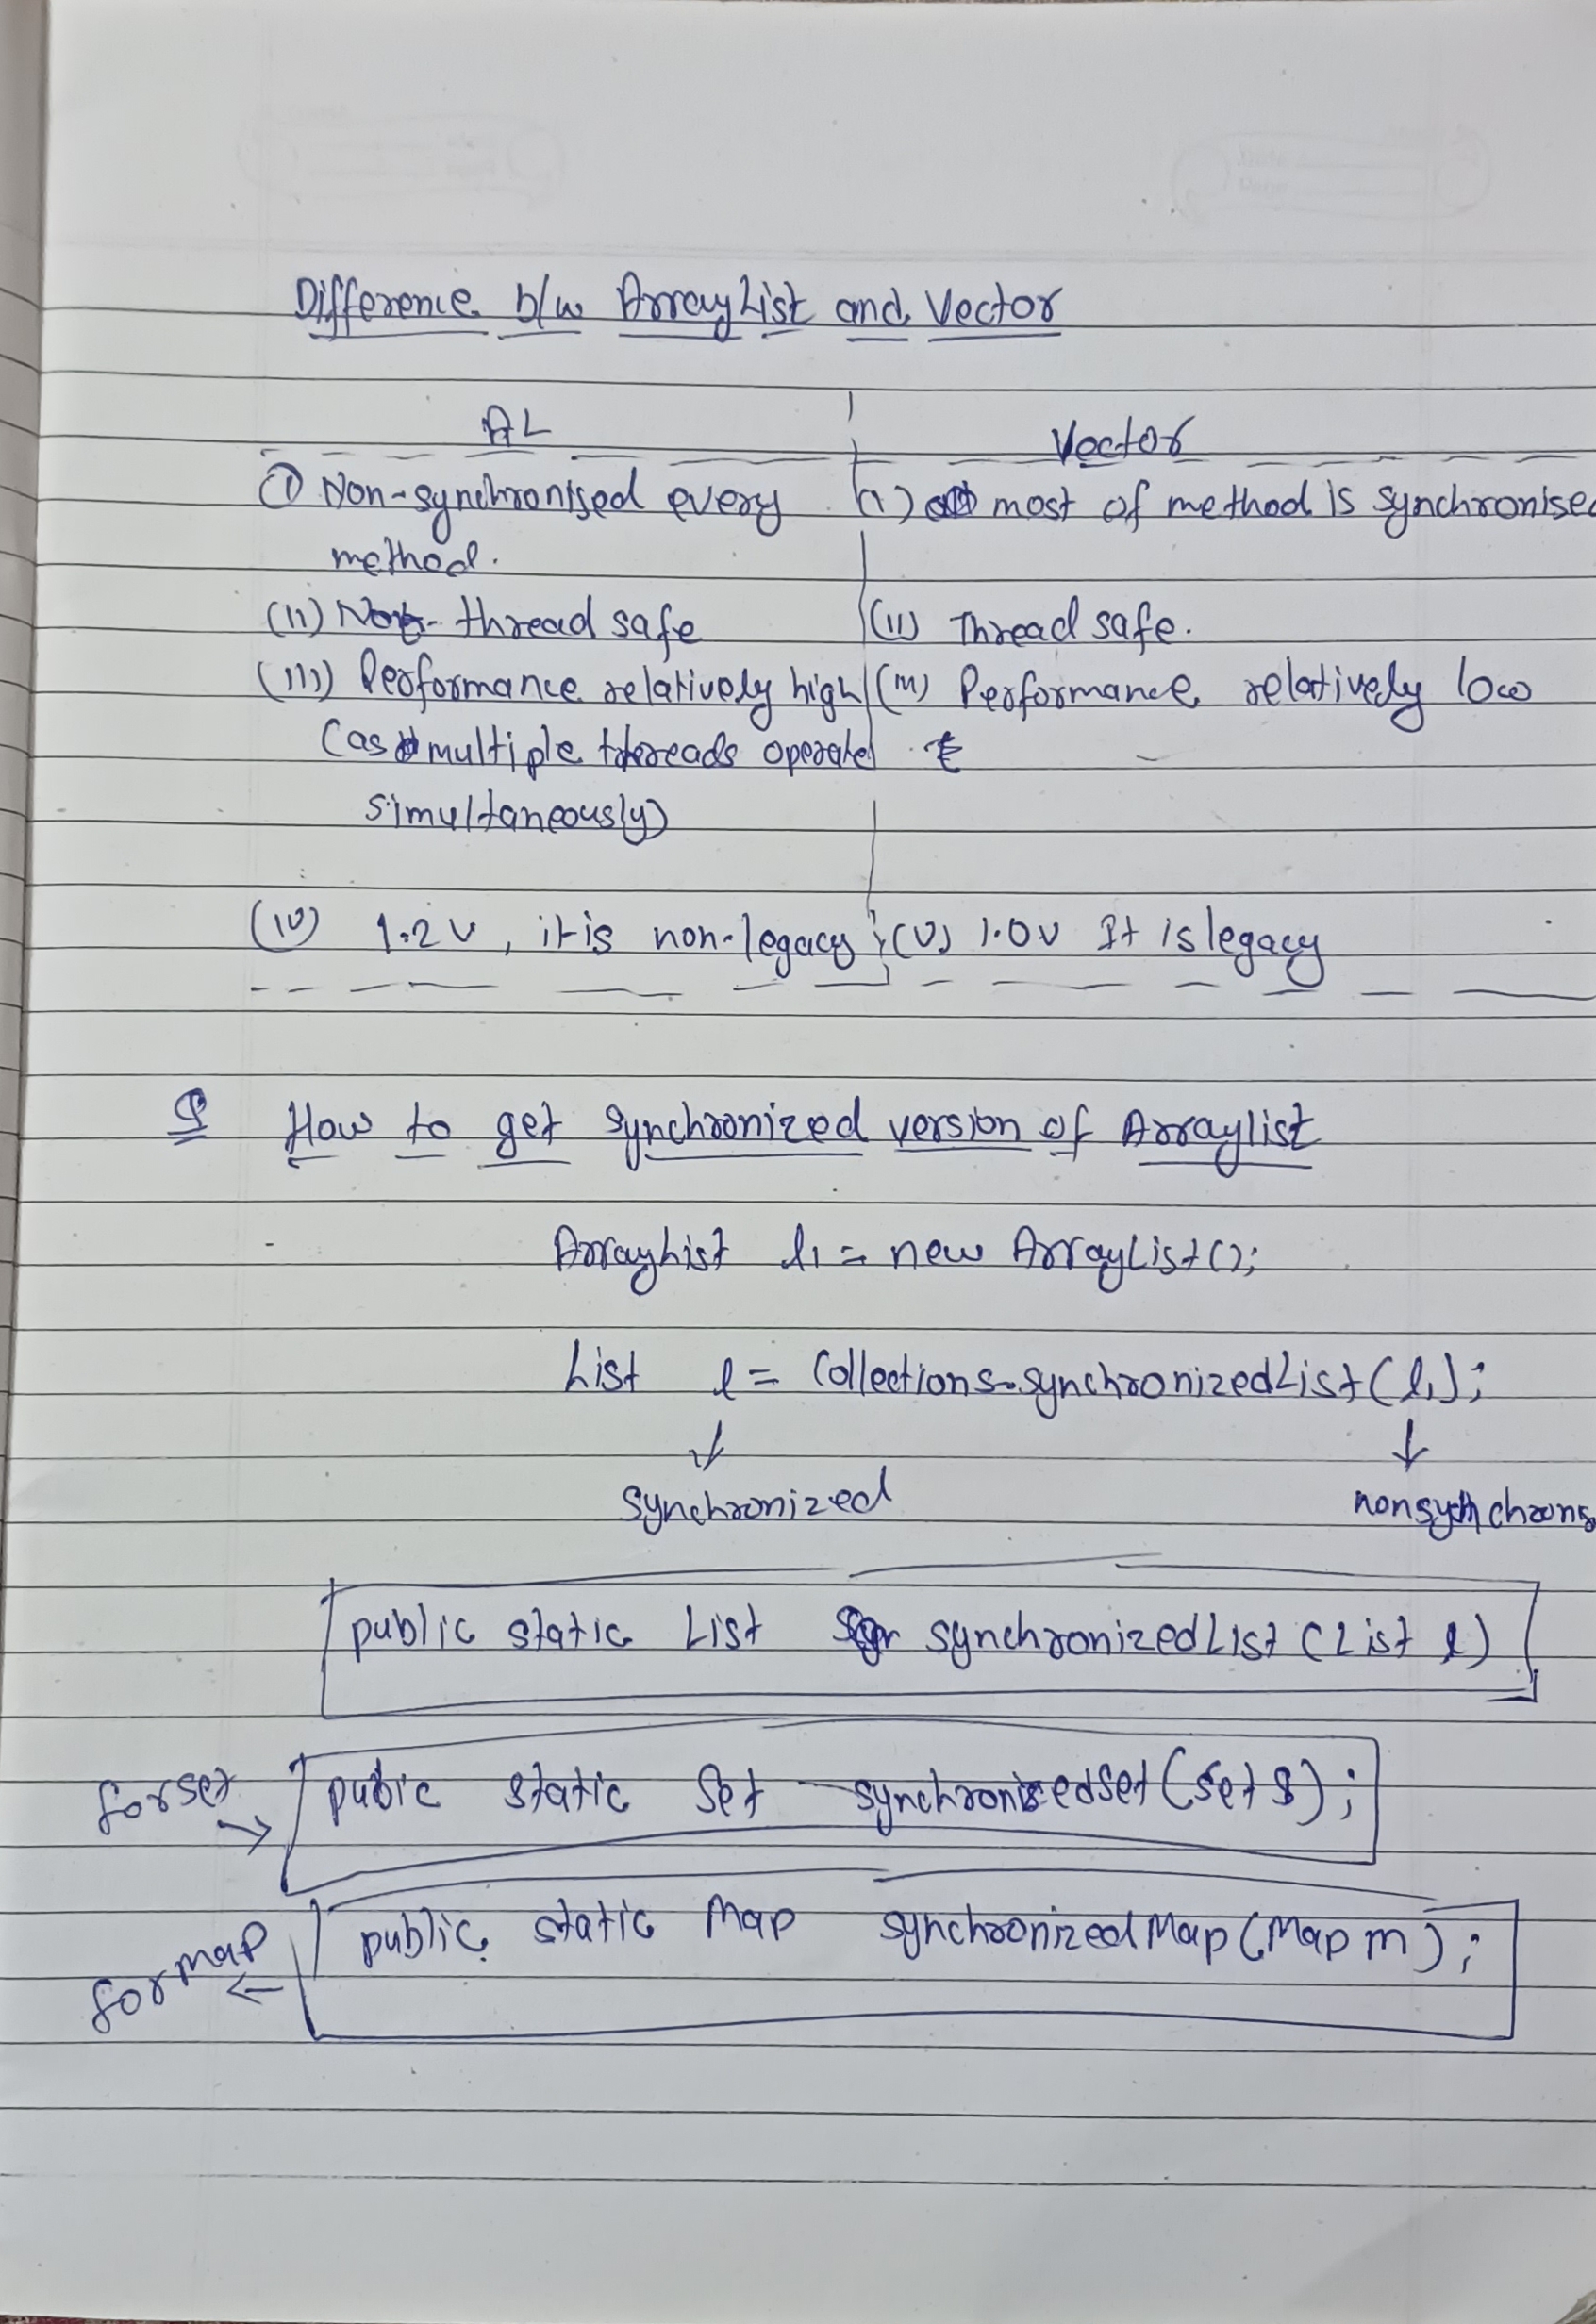 Difference b/w ArrayList and Vector
AL
Vector
(i) Non-synchronised every
method.
(i) most of method is synchronise
(ii) Not- thread safe
(ii) Thread safe.
(iii) Performance relatively high
(as multiple threads operate
simultaneously)
(iii) Performance relatively low
(iv) 1.2 v, it is non-legacy
(v) 1.0v It is legacy
Q How to get synchronized version of Arraylist
ArrayList l1 = new ArrayList();
List l = Collections.synchronizedList(l1);
↓ ↓
synchronized nonsynchrons
public static List synchronizedList (List l)
for set → public static Set synchronizedSet (Set s);
for map ← public static Map synchronizedMap (Map m);